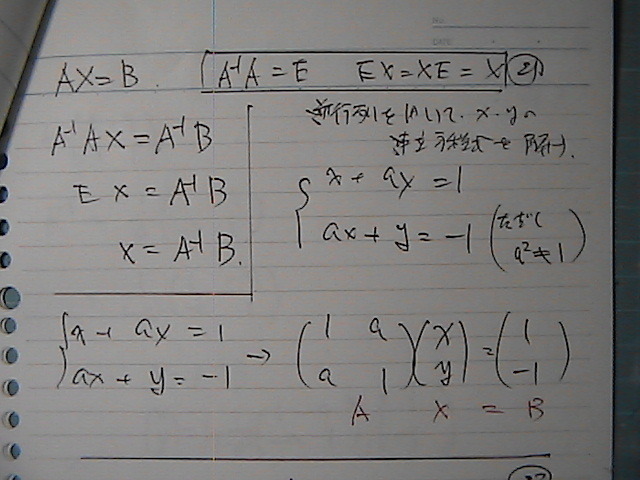 No.
DATE
AX=B. A⁻¹A=E EX=XE=X
A⁻¹AX=A⁻¹B
EX=A⁻¹B
X=A⁻¹B.
逆行列を用いて、x、yの
連立方程式を解け.
x+ay=1
ax+y=-1 (ただし a²≠1)
{x+ay=1
ax+y=-1 → (1 a
a 1)(x
y)=(1
-1)
A X = B